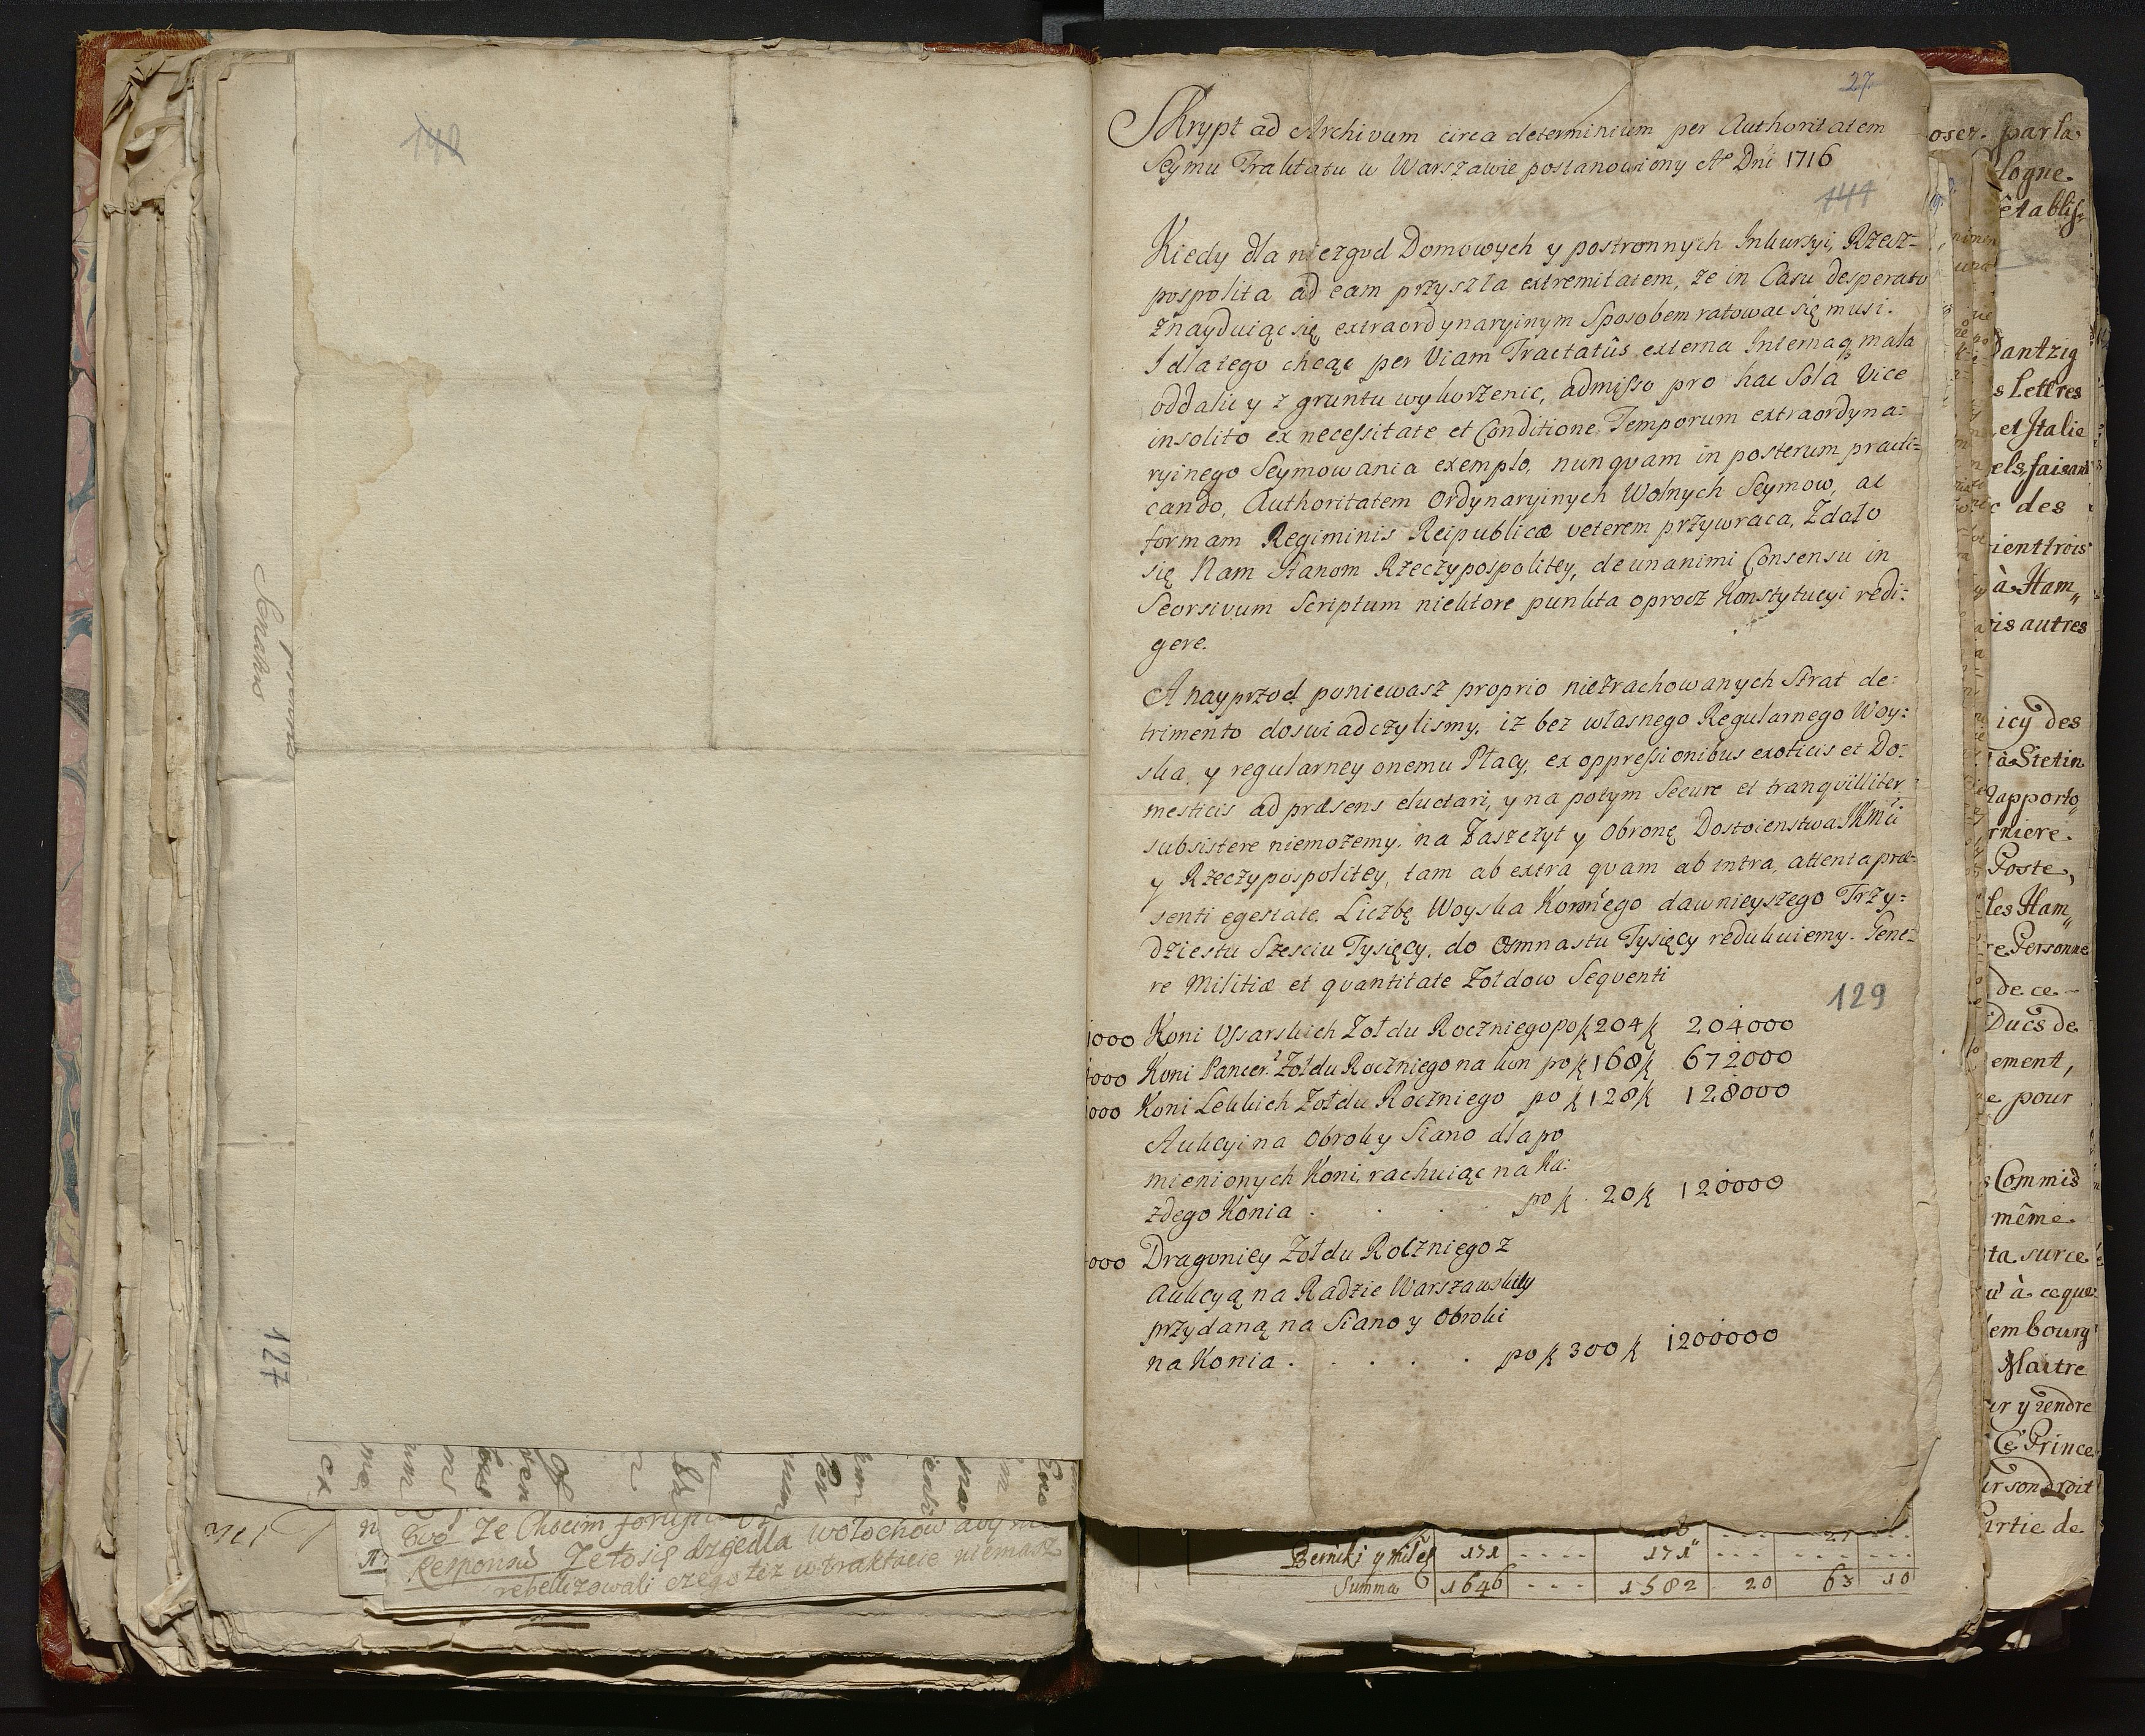 148
Senatus
127
Ewo Ze Chocim
Responsio Ze to się dzgedla wołochow aby
rebellizowali czego też w traktacie niemasz
27
Skrypt ad Archivum circa determinium per Authoritatem
Seymu Traktatu w Warszawie postanowiony Ao Dni 1716
144
Kiedy dla niezgod Domowych y postronnych Inkursyi, Rzecz=
pospolita ad eam przyszła extremitatem, że in Casu desperato
znayduiąc się extraordynaryinym Sposobem ratować się musi.
I dla tego chcąc per Viam Tractatûs externa Internaq mala
oddalic y z gruntu wykorzenic, admisso pro hac Sola Vice
insolito ex necessitate et Conditione Temporum extraordyna=
ryinego Seymowania exemplo, nunqvam in posterum practi=
cando, Authoritatem Ordynaryinych Wolnych Seymow, ac
formam Regiminis Reipublicæ veterem przywraca, Zdało
się Nam Stanom Rzeczypospolitey, de unanimi Consensu in
Seorsivum Scriptum niektore punkta oprocz Konstytucyi redi=
gere.
A nayprzod poniewasz proprio niezrachowanych Strat de=
trimento doswiadczylismy, iz bez własnego Regularnego Woy=
ska, y regularney onemu Płacy, ex oppressionibus exoticis et Do=
mesticis ad præsens eluctari, y na potym Secure et tranqvilliter
subsistere niemożemy, na Zaszczyt y Obronę Dostoienstwa JKMci
y Rzeczypospolitey, tam ab extra qvam ab intra, attenta præ=
senti egestate. Liczbę Woyska Koronego dawnieyszego Trzy=
dziestu Szesciu Tysięcy, do Osmnastu Tysięcy redukuiemy. Gene=
re Militiæ et qvantitate Zołdow Seqventi
129
1000 Koni Ussarskich Zołdu Roczniego po 204 204000
000 Koni Pancer. Zołdu Roczniego na kon po 168 672000
000 Koni Lekkich Zołdu Roczniego po 128 128000
Aukcyi na Obroky Siano dla po
mienionych Koni, rachuiąc na Ka=
zdego Konia . . . . po 20 120000
000 Dragoniey Zołdu Roczniego z
Aukcyą na Radzie Warszawskiey
przydaną na Siano y Obroki
na Konia . . . . . po 300 1200000
171 . . . . 171 . . . . . . . . .
Summa 1646 - - - 1582 20 63 10
oser. par la
logne
établis
Dantzig
s Lettres
et Italie
els, faisant
des
ient trois
à Ham
is autres
icy des
à Stetin
Rapporto
rniere.
Poste,
les Ham
re Personne
de ce
Ducs de
ement,
e pour
Commis
même
ta sur ce
u' à ce que
embourg
Maitre
er y rendre
Ce Prince
ir son droit
artie de